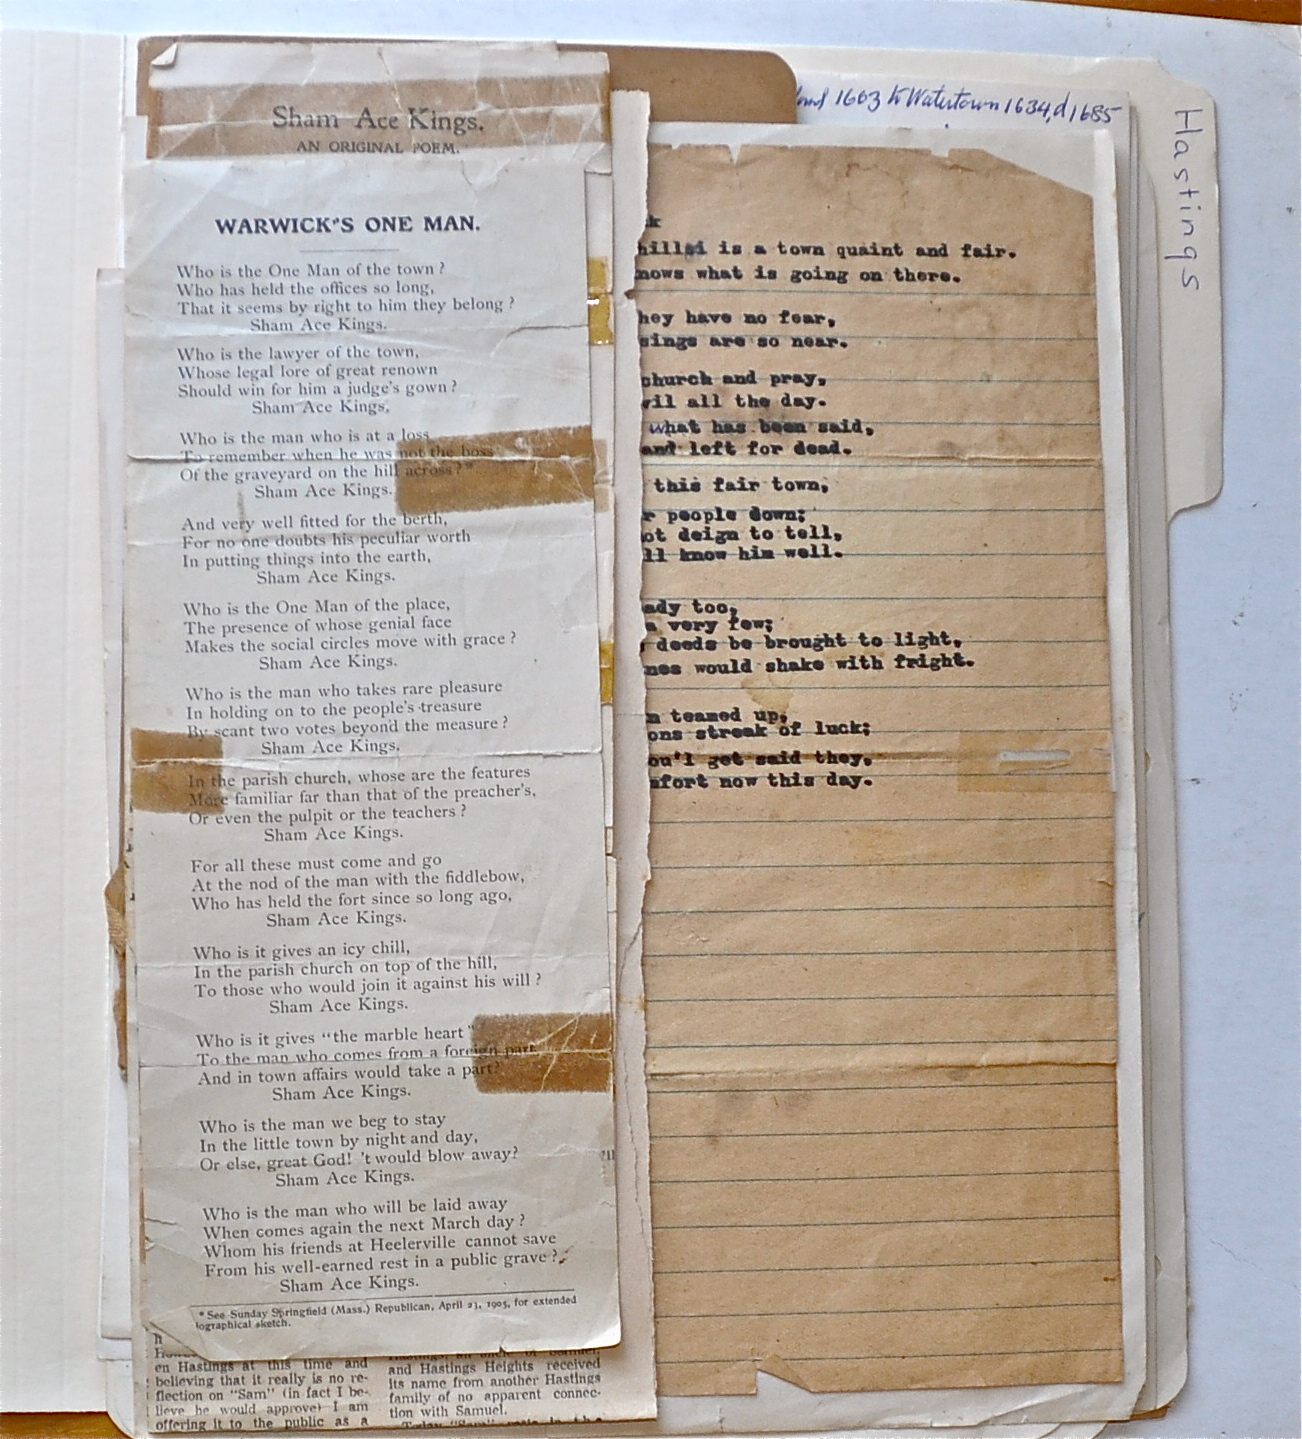 Sham Ace Kings.
AN ORIGINAL POEM.
WARWICK'S ONE MAN.
Who is the One Man of the town?
Who has held the offices so long,
That it seems by right to him they belong?
Sham Ace Kings.
Who is the lawyer of the town,
Whose legal lore of great renown
Should win for him a judge's gown?
Sham Ace Kings,
Who is the man who is at a loss
To remember when he was not the boss
Of the graveyard on the hill across?"
Sham Ace Kings.
And very well fitted for the berth,
For no one doubts his peculiar worth
In putting things into the earth,
Sham Ace Kings.
Who is the One Man of the place,
The presence of whose genial face
Makes the social circles move with grace?
Sham Ace Kings.
Who is the man who takes rare pleasure
In holding on to the people's treasure
By scant two votes beyond the measure?
Sham Ace Kings.
In the parish church, whose are the features
More familiar far than that of the preacher's,
Or even the pulpit or the teachers?
Sham Ace Kings.
For all these must come and go
At the nod of the man with the fiddlebow,
Who has held the fort since so long ago,
Sham Ace Kings.
Who is it gives an icy chill,
In the parish church on top of the hill,
To those who would join it against his will?
Sham Ace Kings.
Who is it gives "the marble heart"
To the man who comes from a foreign part
And in town affairs would take a part?
Sham Ace Kings.
Who is the man we beg to stay
In the little town by night and day,
Or else, great God! 't would blow away?
Sham Ace Kings.
Who is the man who will be laid away
When comes again the next March day?
Whom his friends at Heelerville cannot save
From his well-earned rest in a public grave?
Sham Ace Kings.
* See Sunday Springfield (Mass.) Republican, April 23, 1905, for extended
iographical sketch.
en Hastings at this time and
believing that it really is no re-
flection on "Sam" (in fact I be-
lieve he would approve) I am
offering it to the public as a
and Hastings Heights received
its name from another Hastings
family of no apparent connec-
tion with Samuel.
1603 to Watertown 1634, d 1685
Hastings
k
is a town quaint and fair.
nows what is going on there.
hey have no fear,
sings are so near.
church and pray,
vil all the day.
what has been said,
and left for dead.
this fair town,
r people down;
ot deign to tell,
ll know him well.
ady too,
a very few;
deeds be brought to light,
nes would shake with fright.
n teamed up,
ons streak of luck;
ou'l get said they,
mfort now this day.